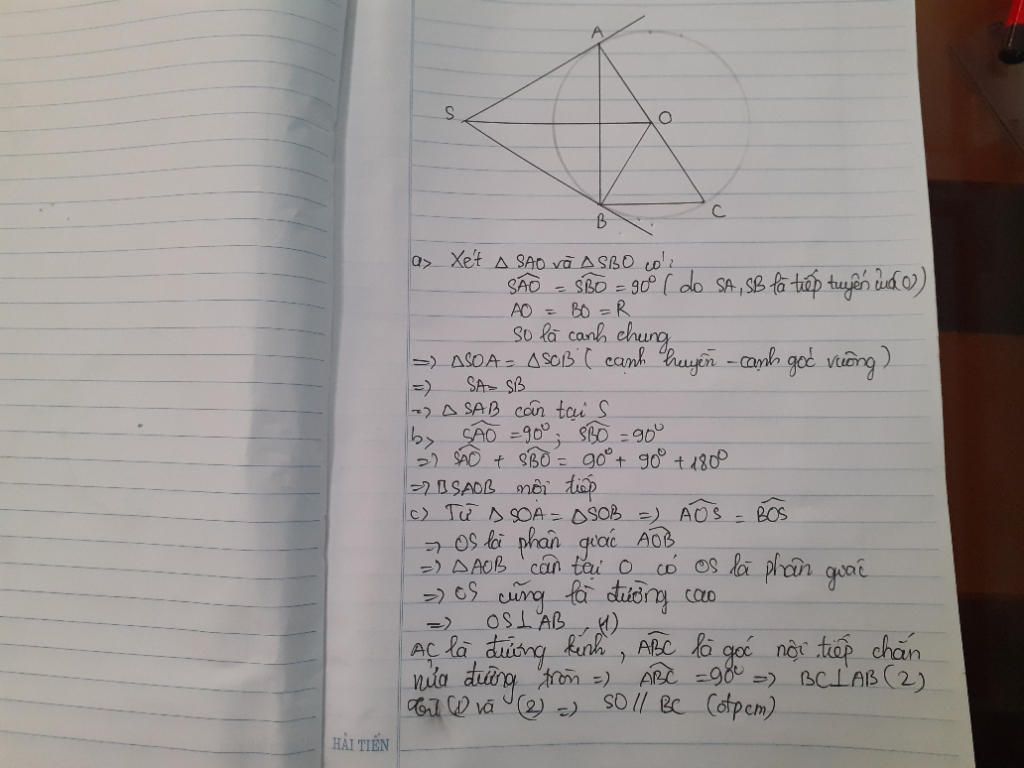 A
S
O
B
C
a> Xét △ SAO và △ SBO có:
SAO = SBO = 90° ( do SA, SB là tiếp tuyến của (O)
AO = BO = R
SO là cạnh chung
=> △SOA = △SOB ( cạnh huyền - cạnh góc vuông )
=> SA = SB
=> △ SAB cân tại S
b> SAO = 90° ; SBO = 90°
=> SAO + SBO = 90° + 90° + 180°
=> BSAOB nội tiếp
c) Từ △SOA = △SOB => AOS = BOS
=> OS là phân giác AOB
=> △AOB cân tại O có OS là phân giác
=> OS cũng là đường cao
=> OS ⊥ AB (1)
AC là đường kính, ABC là góc nội tiếp chắn
nửa đường tròn => ABC = 90° => BC ⊥ AB (2)
Từ (1) và (2) => SO // BC (đpcm)
HẢI TIẾN